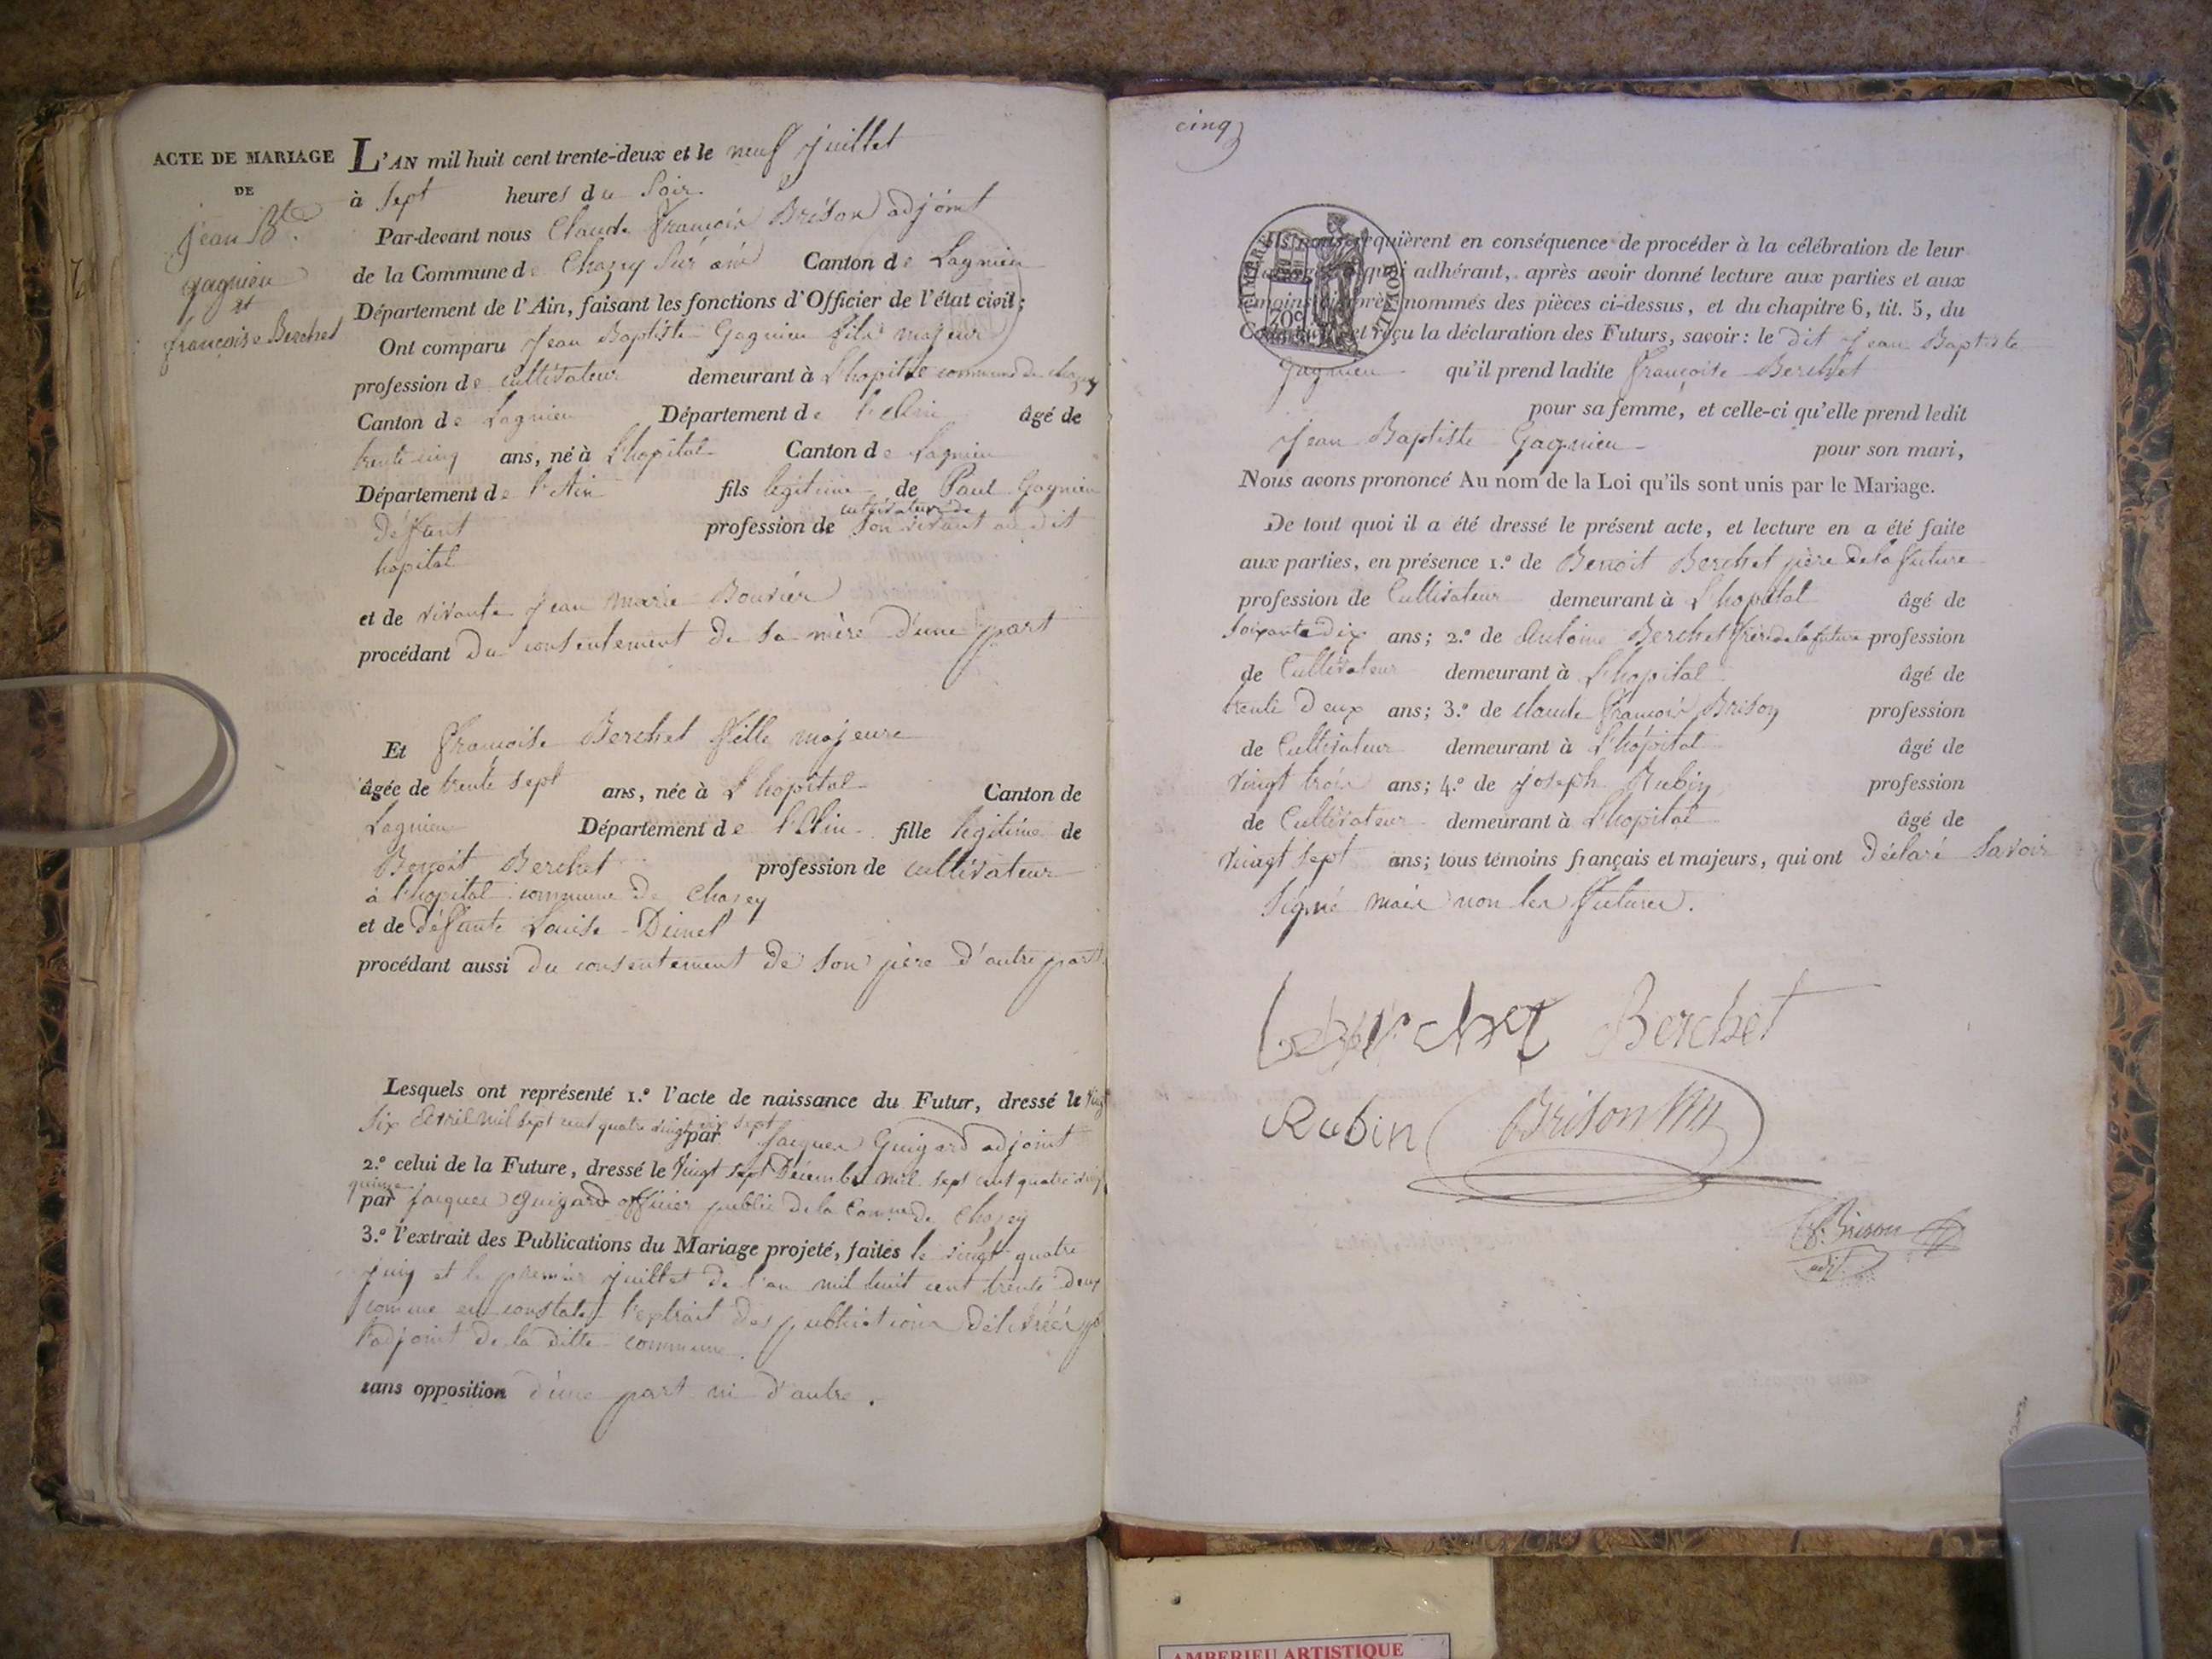 ACTE DE MARIAGE
DE
Jean Bte
gagnieu
et
françoise Berchet
L'AN mil huit cent trente-deux et le neuf Juillet
à Sept heures du Soir
Par-devant nous Claude François Brison adjoint
de la Commune de Chazey Sur ain Canton de Lagnieu
Département de l'Ain, faisant les fonctions d'Officier de l'état civil;
Ont comparu Jean Baptiste Gagnieu fils majeur
profession de cultivateur demeurant à L'hopital commune de chazey
Canton de Lagnieu Département de l'Ain âgé de
trente cinq ans, né à L'hopital Canton de Lagnieu
Département de l'Ain fils legitime de Paul Gagnieu
cultivateur de
défunt profession de Son vivant au dit
hopital
et de vivante Jean Marie Bouvier
procédant du consentement de sa mère d'une part
Et Françoise Berchet fille majeure
âgée de trente sept ans, née à L'hopital Canton de
Lagnieu Département de l'Ain fille legitime de
Benoit Berchet profession de cultivateur
à l'hopital commune de Chazey
et de défunte Louise
procédant aussi du consentement de son père d'autre part
Lesquels ont représenté 1.º l'acte de naissance du Futur, dressé le vingt
six avril mil sept cent quatre vingt dix sept
par Jacques Guigard adjoint
2.º celui de la Future, dressé le vingt sept Décembre mil sept cent quatre vingt
quinze
par Jacques Guigard officier public de la Comune de Chazey
3.º l'extrait des Publications du Mariage projeté, faites le vingt quatre
Juin et le premier Juillet de l'an mil huit cent trente deux
comme en constate l'extrait des publications délivrées
l'adjoint de la ditte commune
sans opposition d'une part ni d'autre.
cinq
TIMBRE ROYAL
70c
Ils nous requièrent en conséquence de procéder à la célébration de leur
mariage; à quoi adhérant, après avoir donné lecture aux parties et aux
témoins ci-après nommés des pièces ci-dessus, et du chapitre 6, tit. 5, du
Code civil, et reçu la déclaration des Futurs, savoir: le dit Jean Baptiste
Gagnieu qu'il prend ladite Françoise Berchet
pour sa femme, et celle-ci qu'elle prend ledit
Jean Baptiste Gagnieu pour son mari,
Nous avons prononcé Au nom de la Loi qu'ils sont unis par le Mariage.
De tout quoi il a été dressé le présent acte, et lecture en a été faite
aux parties, en présence 1.º de Benoit Berchet père de la future
profession de Cultivateur demeurant à L'hopital âgé de
soixante dix ans; 2.º de Antoine Berchet frère de la future profession
de Cultivateur demeurant à L'hopital âgé de
trente deux ans; 3.º de claude François Brison profession
de Cultivateur demeurant à L'hopital âgé de
vingt trois ans; 4.º de joseph Rubin profession
de Cultivateur demeurant à L'hopital âgé de
vingt sept ans; tous témoins français et majeurs, qui ont déclaré Savoir
signé mais non les futures.
Berchet
Rubin Brison
Brison
adj.
AMBERIEU ARTISTIQUE